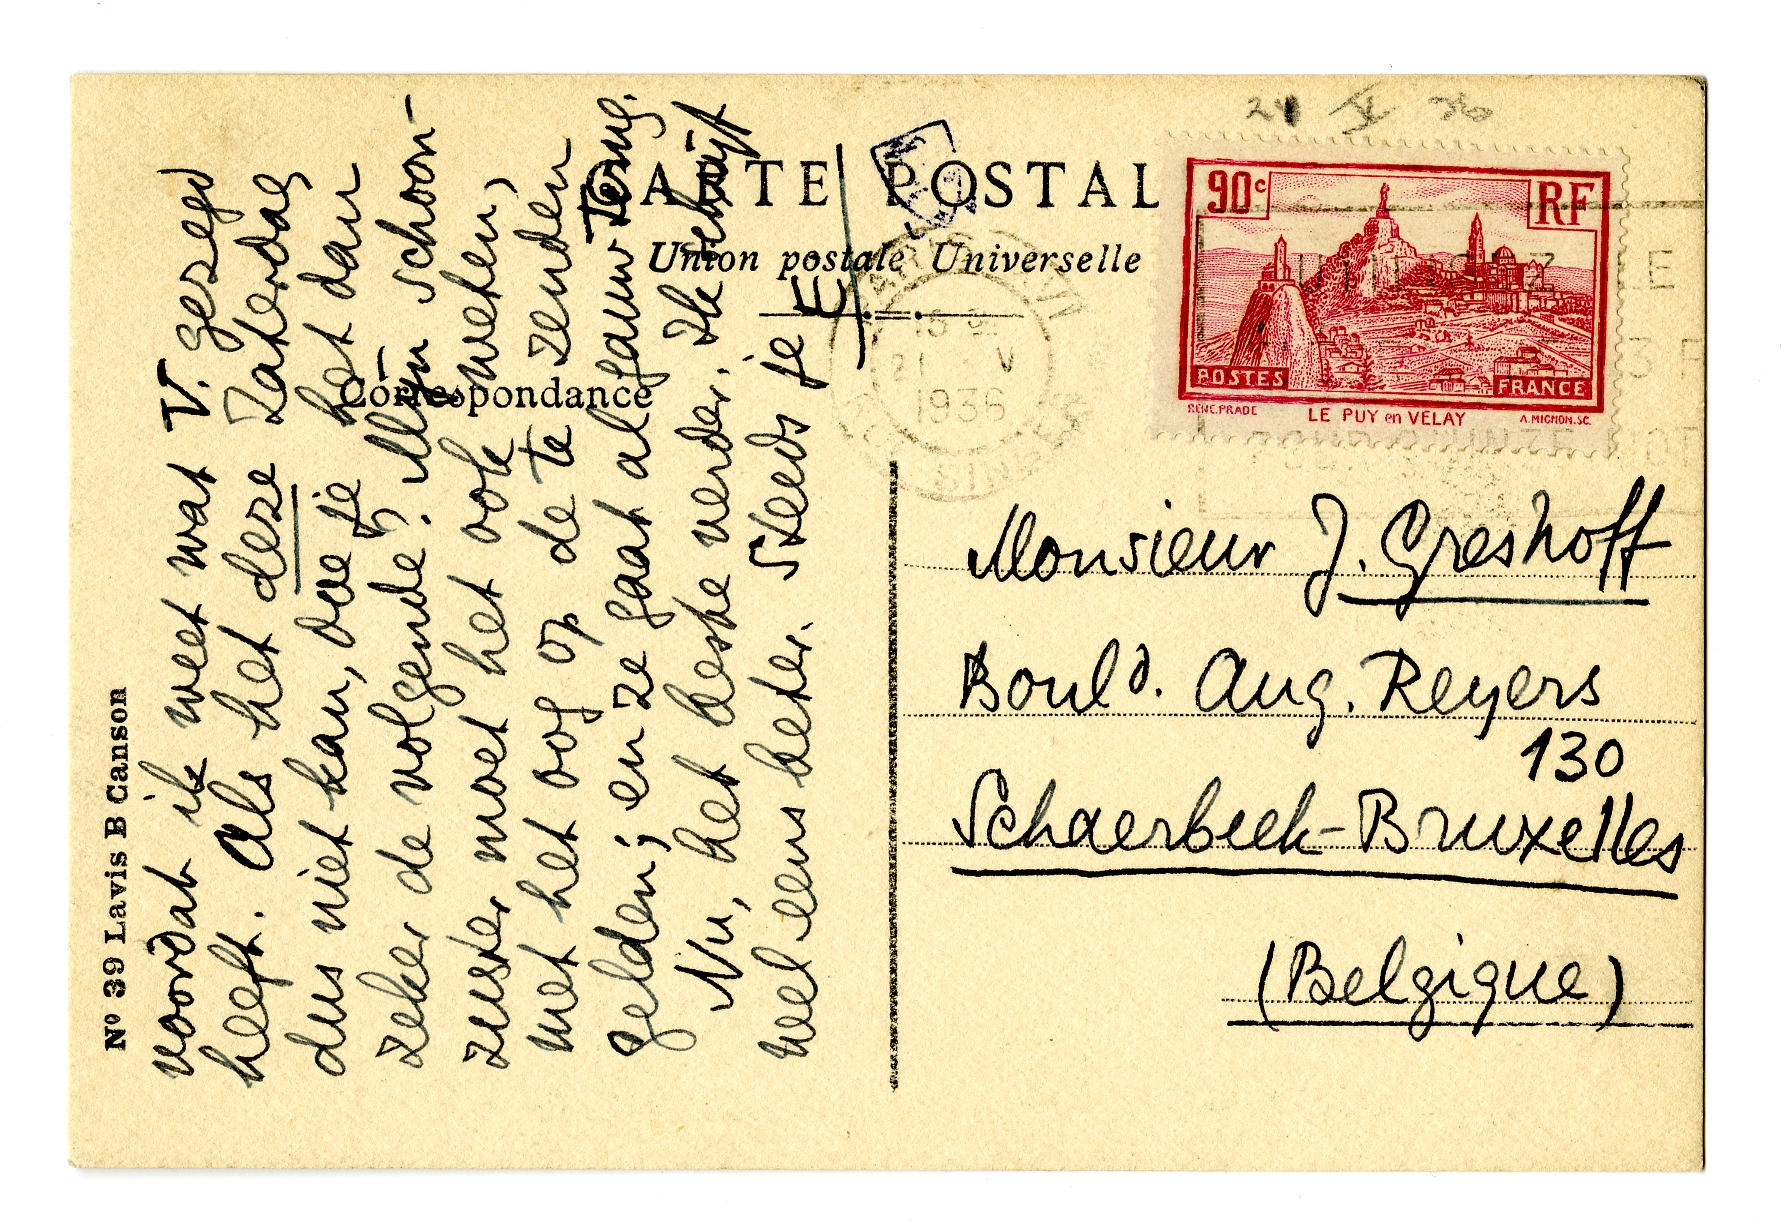 CARTE POSTALE
Union postale Universelle
Correspondance
Nº 39 Lavis B Canson
voordat ik weet wat V. gezegd
heeft. Als het deze Zaterdag
dus niet kan, doe je het dan
zeker de volgende? Mijn schoon-
zuster moet het ook weten,
met het oog op de te zenden
gelden; en ze gaat al gauw terug.
Nu, het beste verder. Ik schrijf
wel eens beter. Steeds je E
21 V 36
90c
RF
POSTES
FRANCE
RENE.PRADE
LE PUY en VELAY
A.MIGNON.SC.
21 V
1936
Monsieur J. Greshoff
Bould. Aug. Reyers
130
Schaerbeek-Bruxelles
(Belgique)